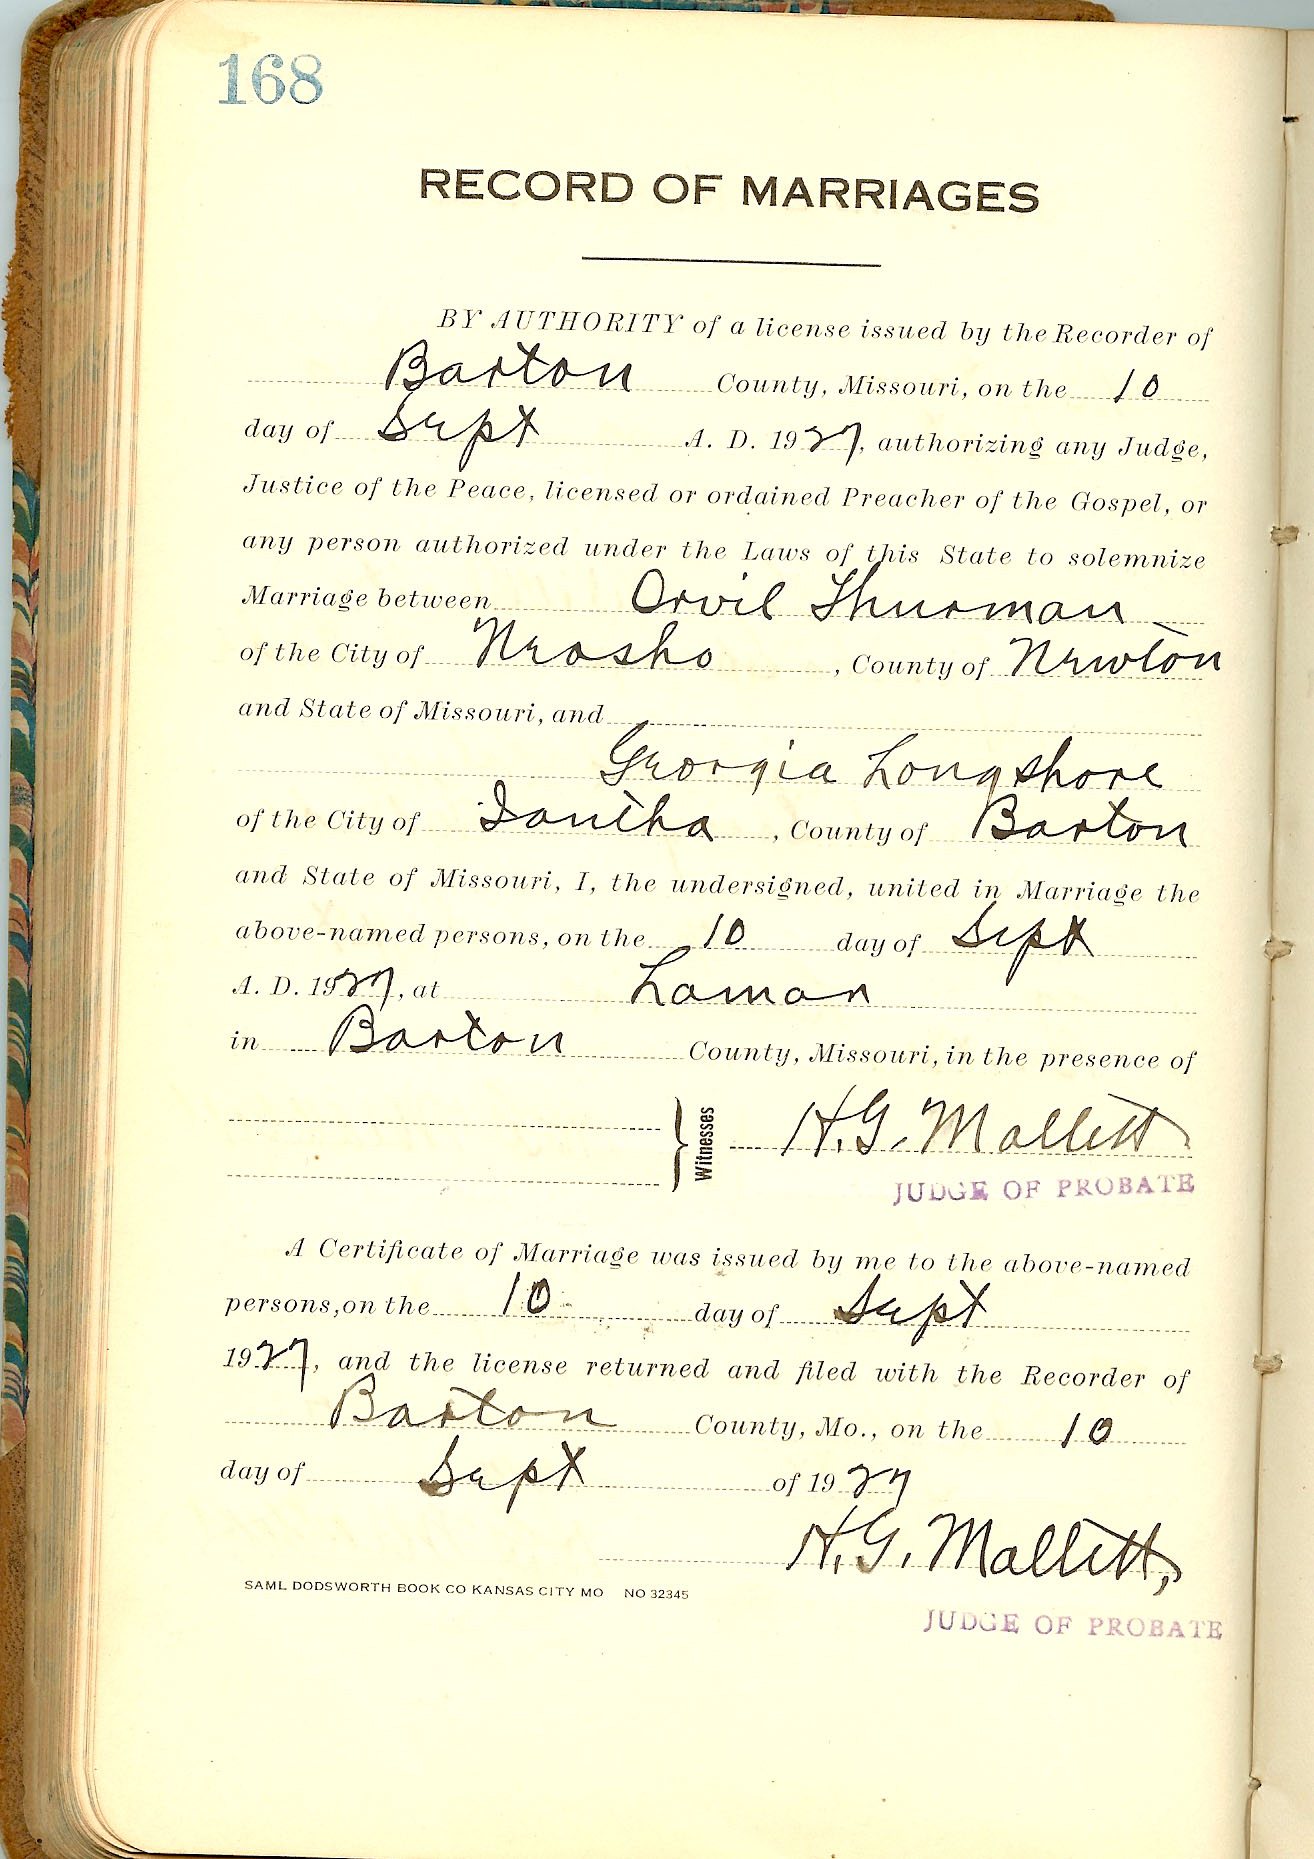 168
RECORD OF MARRIAGES
BY AUTHORITY of a license issued by the Recorder of
Barton County, Missouri, on the 10
day of Sept A. D. 1927, authorizing any Judge,
Justice of the Peace, licensed or ordained Preacher of the Gospel, or
any person authorized under the Laws of this State to solemnize
Marriage between Orvil Thurman
of the City of Neosho, County of Newton
and State of Missouri, and
Georgia Longshore
of the City of Iantha, County of Barton
and State of Missouri, I, the undersigned, united in Marriage the
above-named persons, on the 10 day of Sept
A. D. 1927, at Lamar
in Barton County, Missouri, in the presence of
Witnesses H. G. Mallett
JUDGE OF PROBATE
A Certificate of Marriage was issued by me to the above-named
persons, on the 10 day of Sept
1927, and the license returned and filed with the Recorder of
Barton County, Mo., on the 10
day of Sept of 1927
H. G. Mallett,
SAML DODSWORTH BOOK CO KANSAS CITY MO NO 32345
JUDGE OF PROBATE